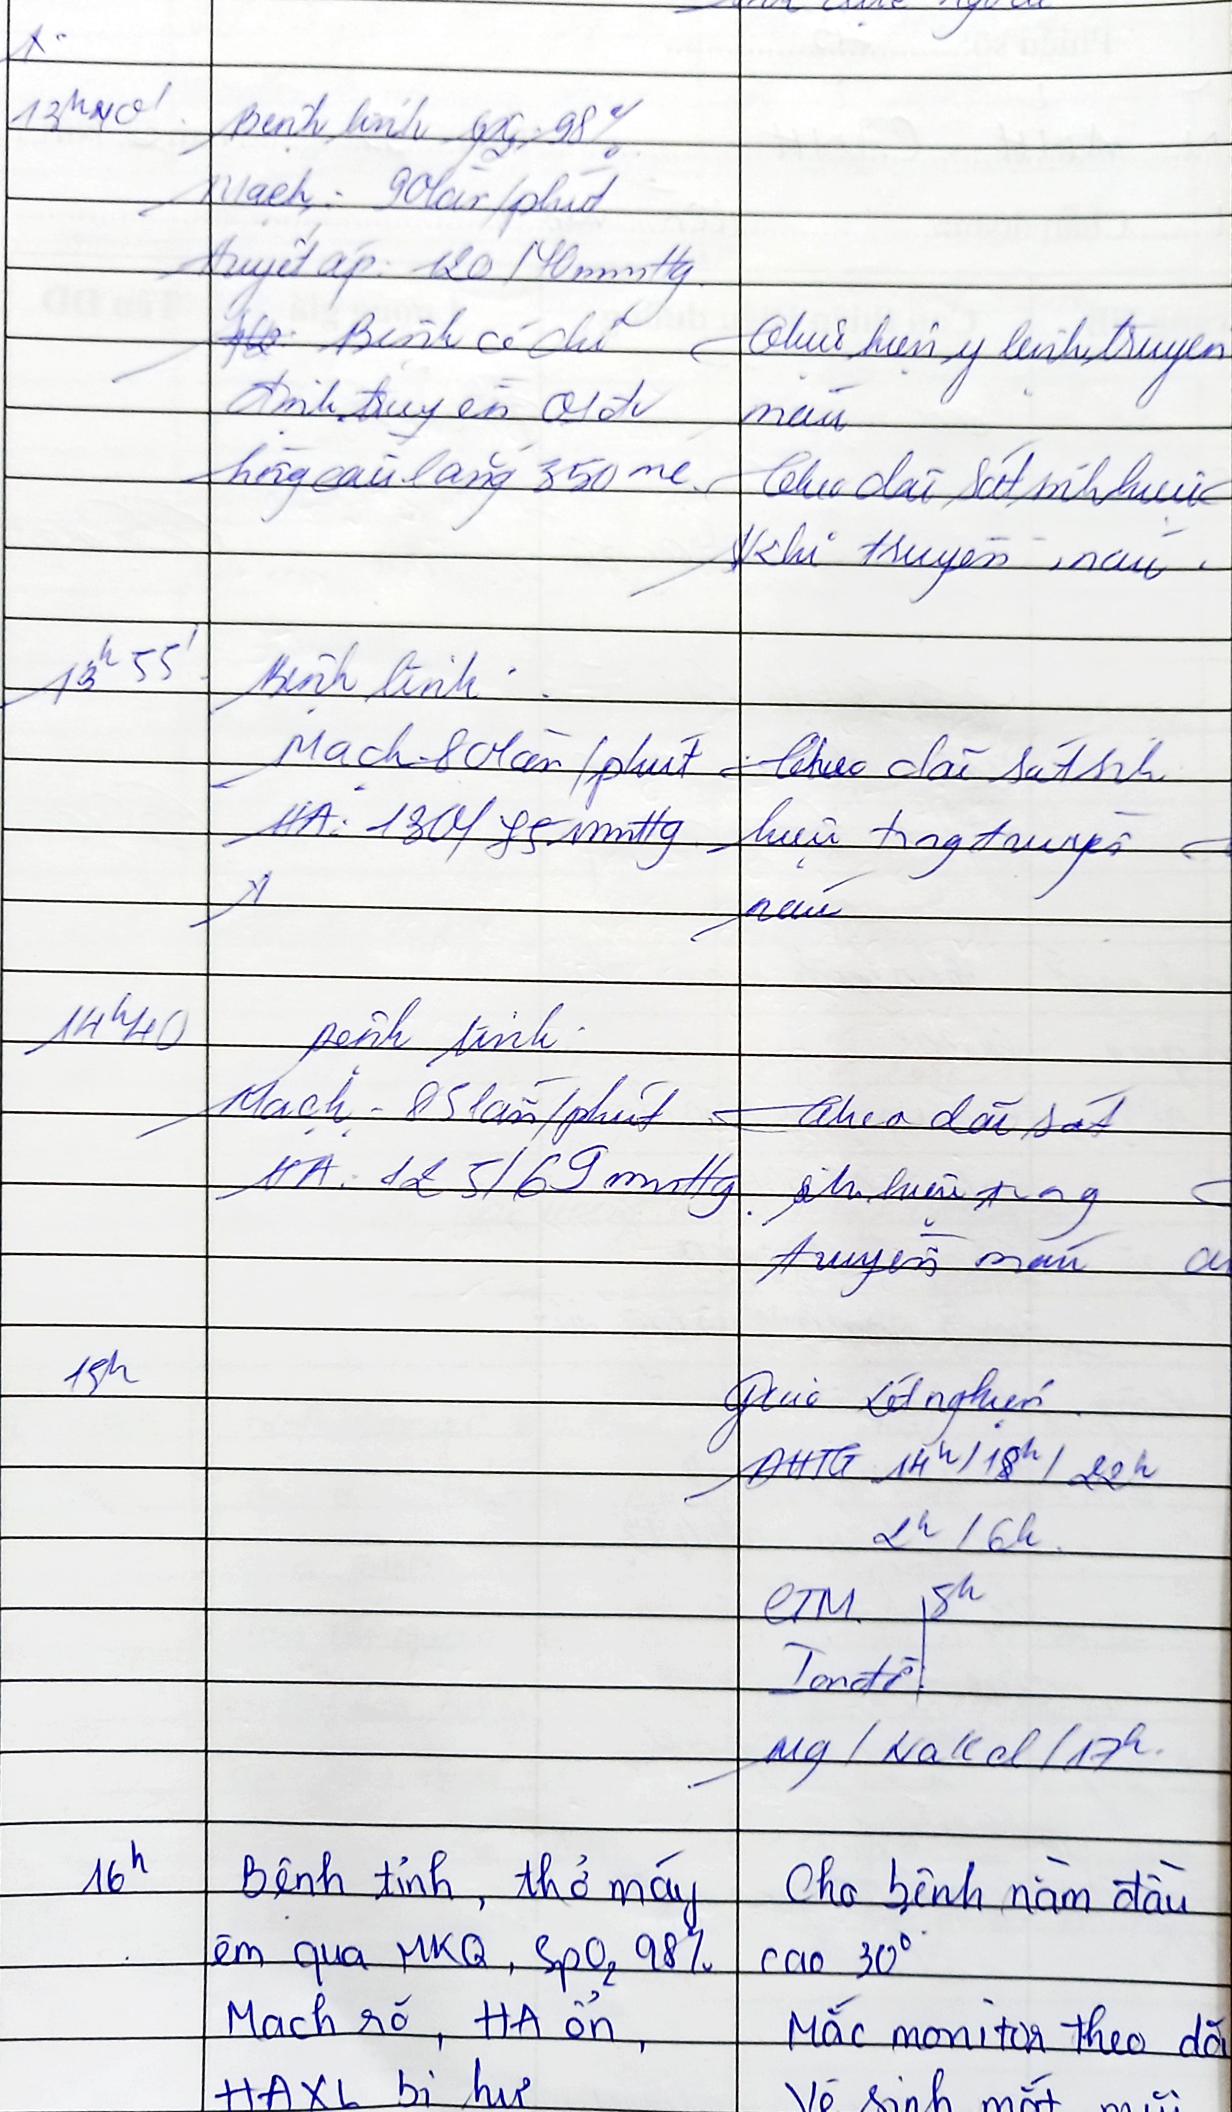 13h40'
Bệnh tỉnh SpO2 98%
Mạch: 90 lần/phút
Huyết áp: 120/70mmHg.
Bệnh có chỉ
định truyền 01 đv
hồng cầu lắng 350 ml.
- Thực hiện y lệnh truyền
máu
- Theo dõi sát sinh hiệu
khi truyền máu.
13h55'
Bệnh tỉnh.
Mạch 80 lần/phút
HA: 130/85mmHg
- Theo dõi sát sinh
hiệu trong truyền
máu
14h40
Bệnh tỉnh.
Mạch: 85 lần/phút
HA: 125/69mmHg.
- Theo dõi sát
sinh hiệu trong
truyền máu
15h
Xét nghiệm.
ĐHTG 14h/18h/22h
2h/6h.
CTM 5h
Ion đồ
Mg / NaKCl / 17h.
16h
Bệnh tỉnh, thở máy
êm qua MKQ, SpO2 98%
Mạch rõ, HA ổn,
HAXL bị hư
Cho bệnh nằm đầu
cao 30°
Mắc monitor theo dõi
Vệ sinh mắt mũi